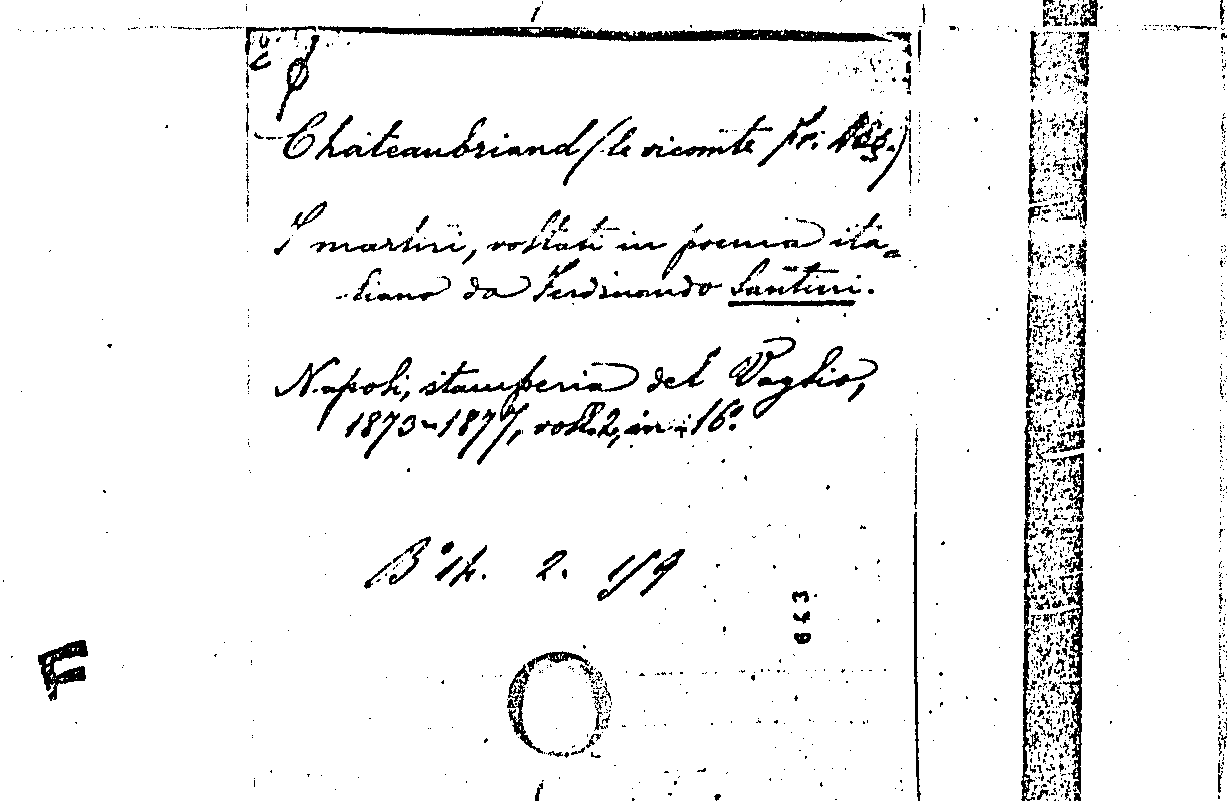 Chateaubriand (le vicomte Fr. Aug.)
I martiri, voltati in poema ita-
liano da Ferdinando Santini.
Napoli, stamperia del Vaglio,
1873-1877, voll. 2, in-16°.
B° 14. 2. 159
643
F